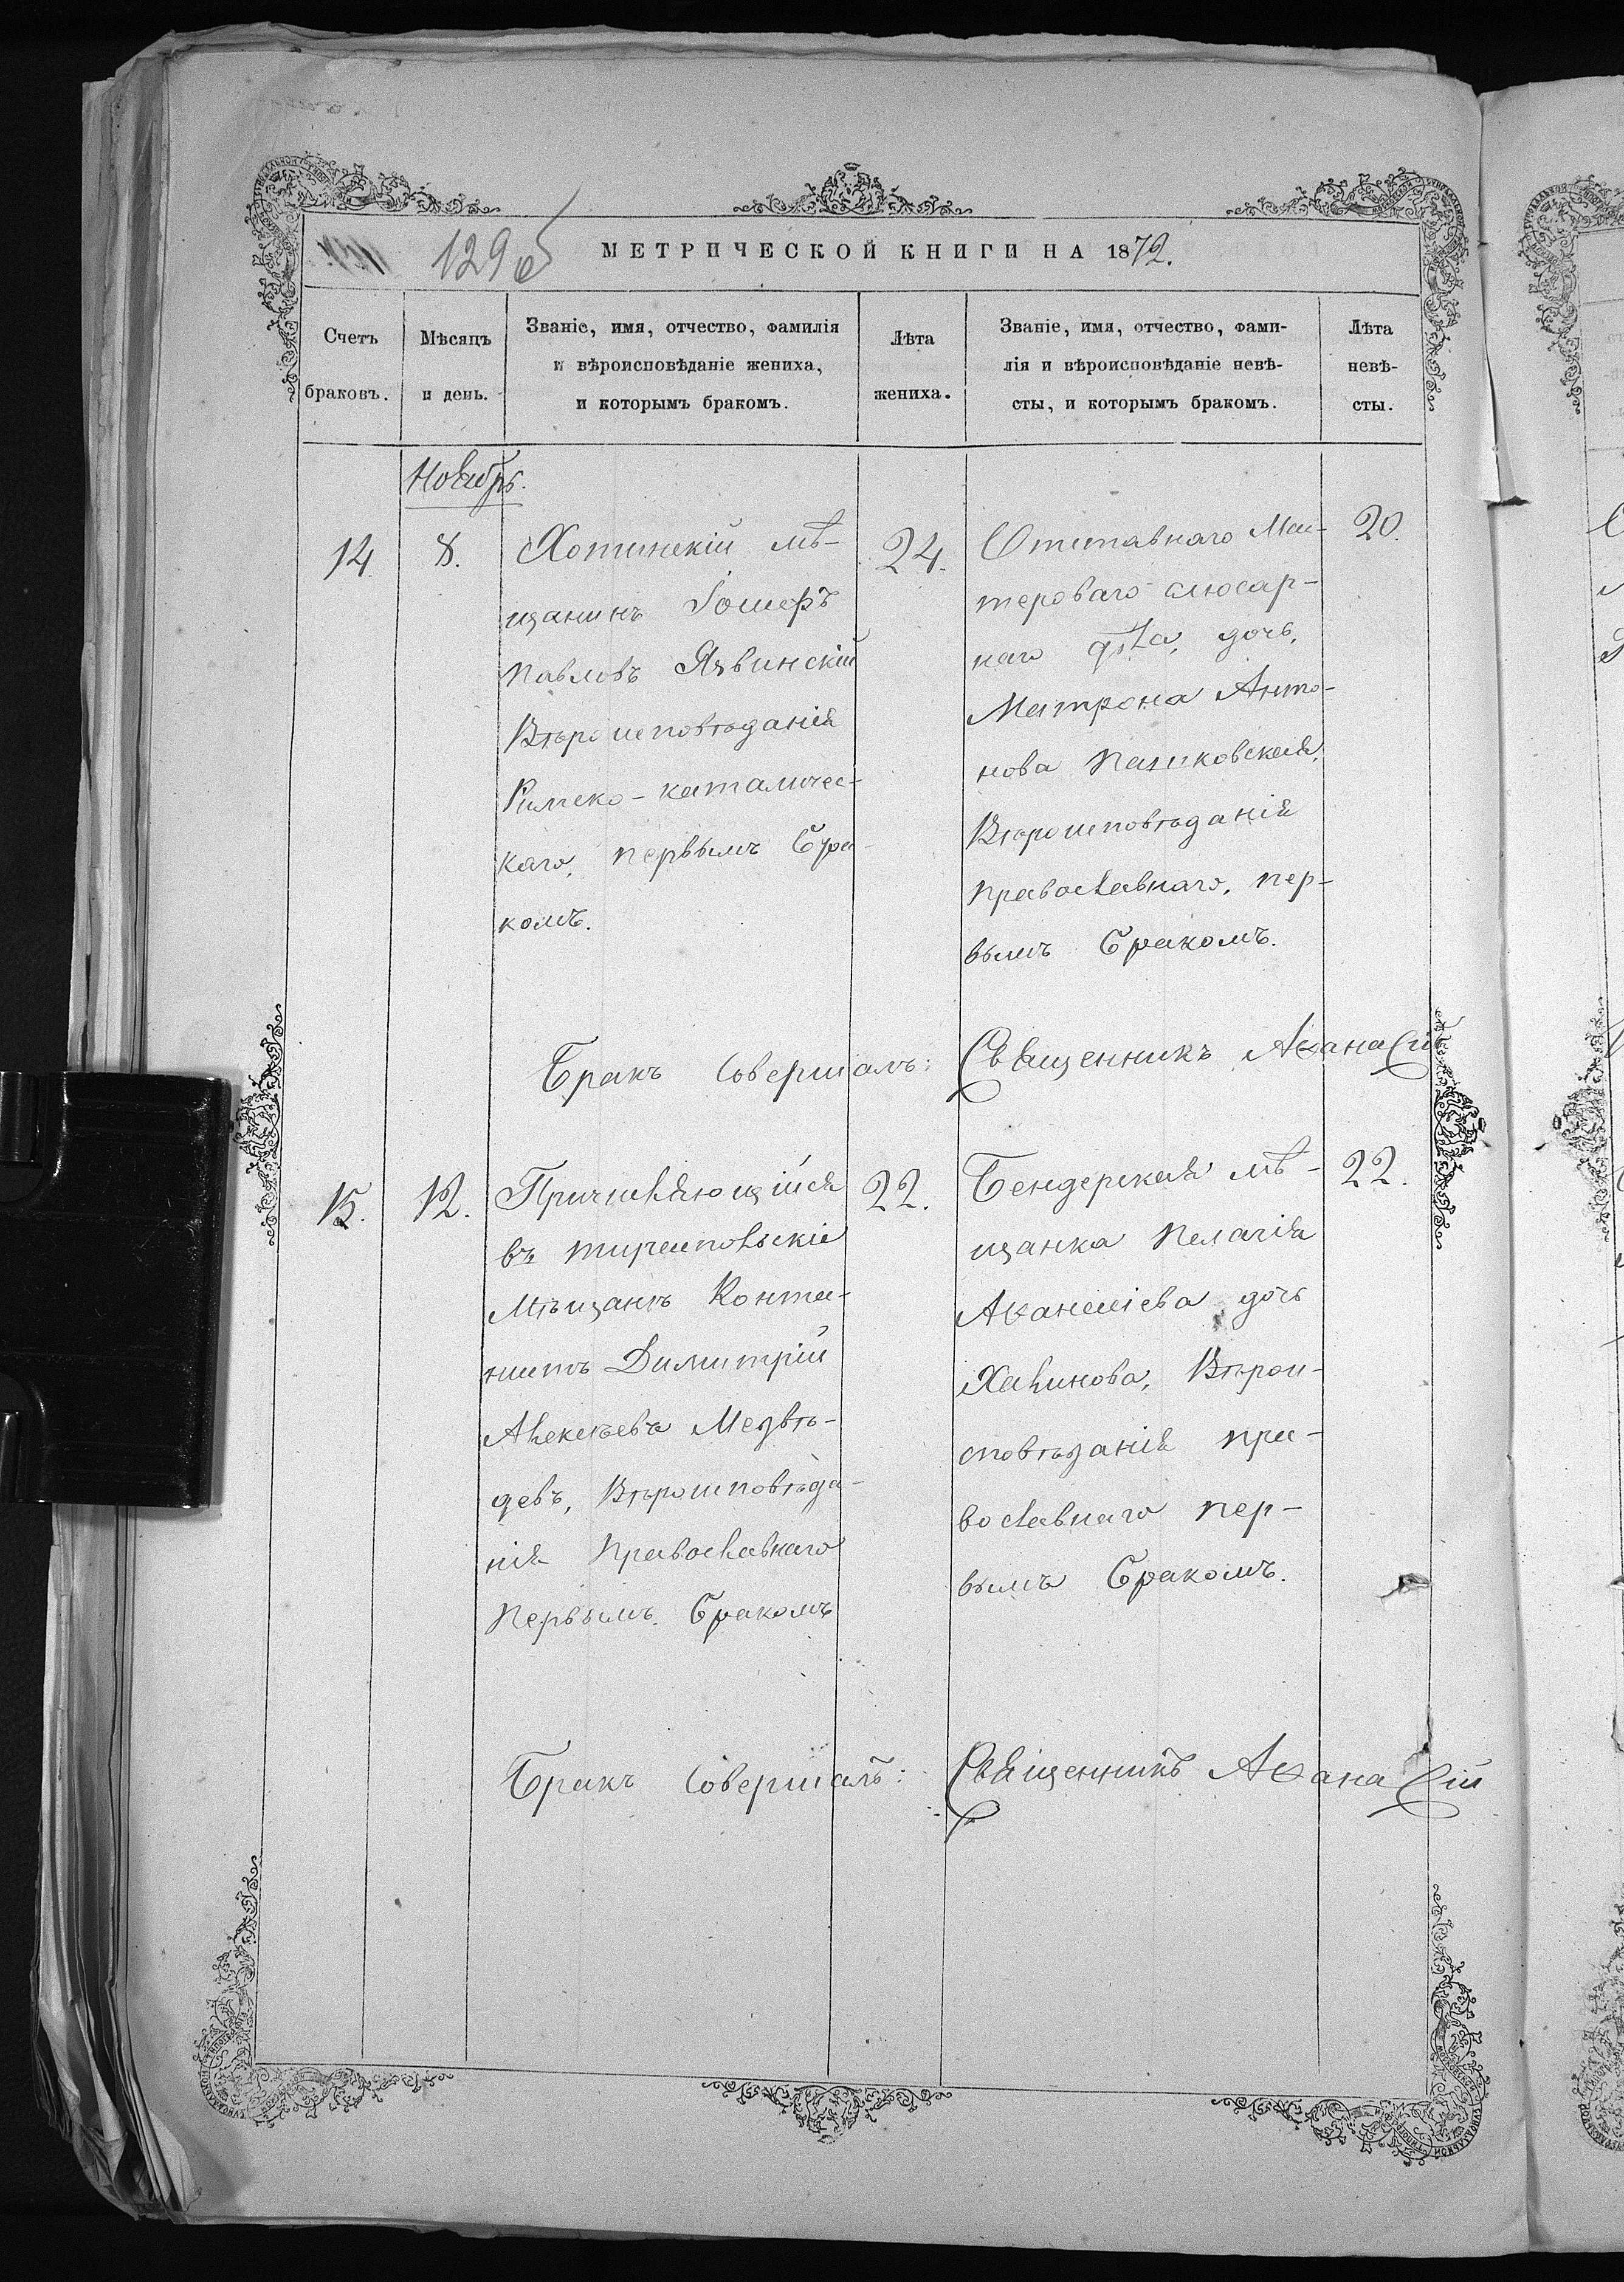 129 об
МЕТРИЧЕСКОЙ КНИГИ НА 1872.
Счетъ браковъ.
Мѣсяцъ и день.
Званіе, имя, отчество, фамилія
и вѣроисповѣданіе жениха,
и которымъ бракомъ.
Лѣта жениха.
Званіе, имя, отчество, фами-
лія и вѣроисповѣданіе невѣ-
сты, и которымъ бракомъ.
Лѣта невѣ-
сты.
Ноябрь.
14.
8.
Хотинскій мѣ-
щанинъ Іосифъ
Павловъ Язвинскій
Вѣроисповѣданія
Римско-католичес-
каго, первымъ бра-
комъ.
24.
Отставнаго Мас-
тероваго слюсар-
наго дочь,
Матрона Анто-
нова
Вѣроисповѣданія
православнаго, пер-
вымъ бракомъ.
20.
Бракъ совершалъ: Священникъ Аѳанасій
15.
12.
Причисляющійся
въ тираспольскіе
Мѣщане
Димитрій
Алексѣевъ Медвѣ-
девъ, Вѣроисповѣда-
нія Православнаго
Первымъ бракомъ
22.
Бендерская мѣ-
щанка Пелагія
Аѳанасіева дочь
Халинова, Вѣрои-
сповѣданія пра-
вославнаго пер-
вымъ бракомъ.
22.
Бракъ совершалъ: Священникъ Аѳанасій